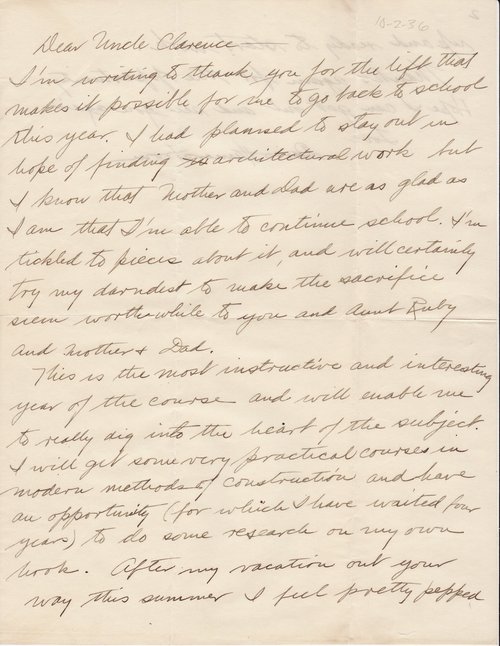 10-2-36
Dear Uncle Clarence
I'm writing to thank you for the lift that
makes it possible for me to go back to school
this year. I had planned to stay out in
hope of finding architectural work but
I know that Mother and Dad are as glad as
I am that I'm able to continue school. I'm
tickled to pieces about it, and will certainly
try my darndest to make the sacrifice
seem worth-while to you and Aunt Ruby
and Mother & Dad.
This is the most instructive and interesting
year of the course and will enable me
to really dig into the heart of the subject.
I will get some very practical courses in
modern methods of construction and have
an opportunity (for which I have waited four
years) to do some research on my own
hook. After my vacation out your
way this summer I feel pretty pepped